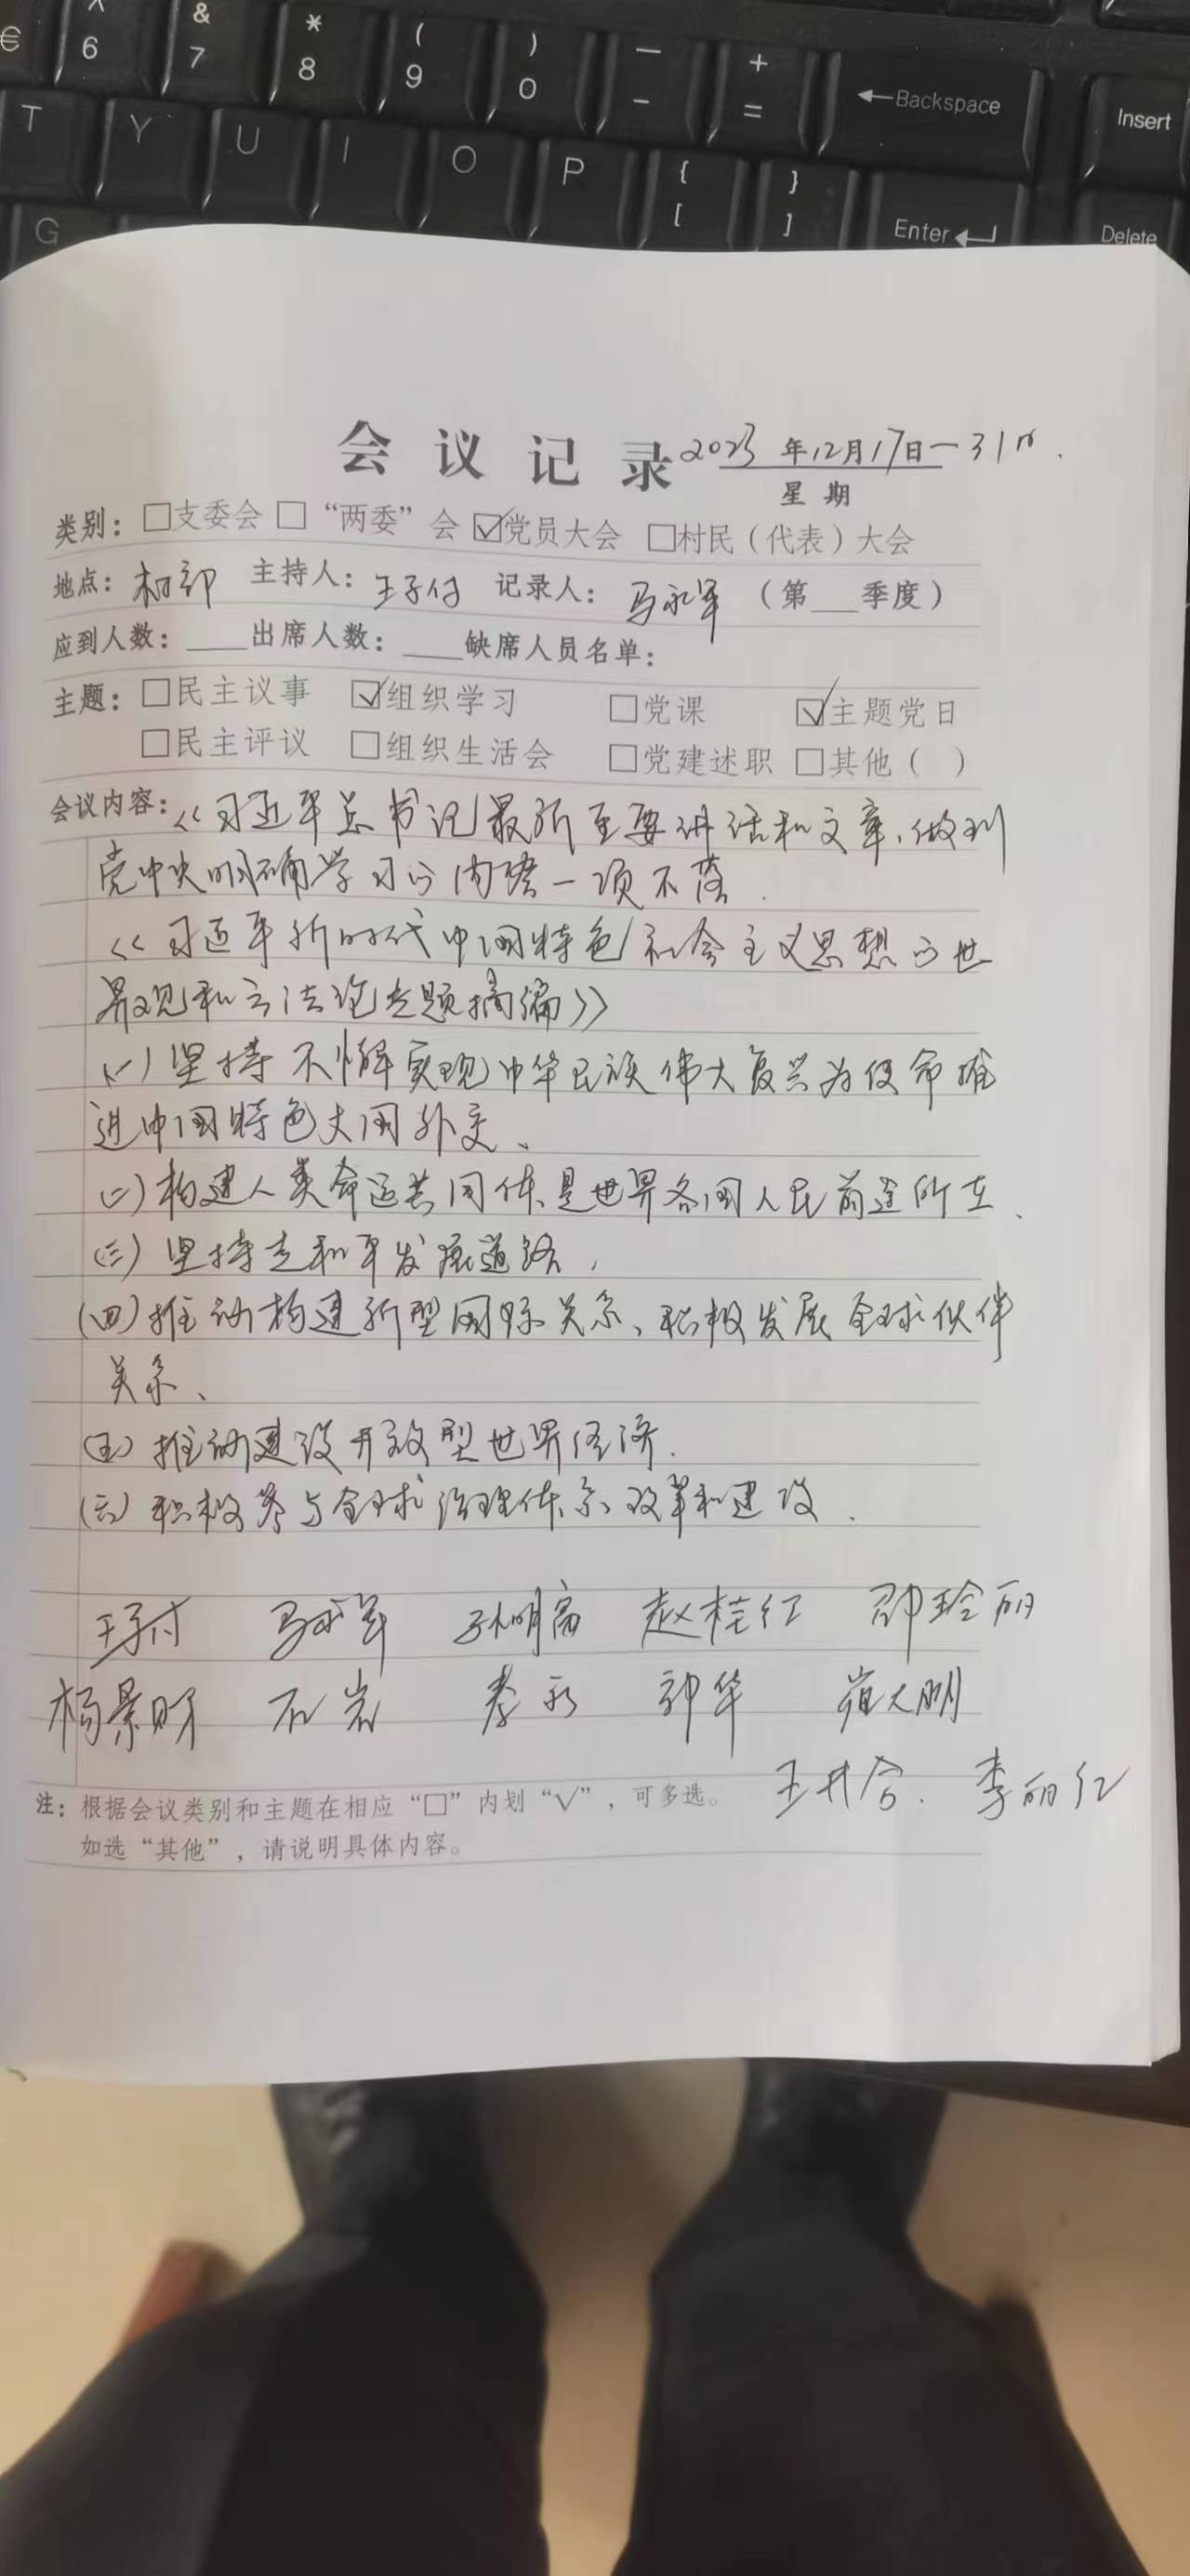 € ^ 6 & 7 * 8 ( 9 ) 0 — - + = ←Backspace Insert
T Y U I O P { [ } ] Enter Delete
G
会议记录 2023年12月17日—31日.
星期
类别：□支委会 □“两委”会 ☑党员大会 □村民（代表）大会
地点：村部 主持人：王子付 记录人：马永军 （第___季度）
应到人数：____出席人数：____缺席人员名单：
主题：□民主议事 ☑组织学习 □党课 ☑主题党日
□民主评议 □组织生活会 □党建述职 □其他（ ）
会议内容：《习近平总书记最新重要讲话和文章、做到
党中央明确学习的内容一项不落.
《习近平新时代中国特色社会主义思想的世
界观和方法论专题摘编》
(一)坚持不懈实现中华民族伟大复兴为使命推
进中国特色大国外交、
(二)构建人类命运共同体、是世界各国人民前途所在、
(三)坚持走和平发展道路,
(四)推动构建新型国际关系、积极发展全球伙伴
关系、
(五)推动建设开放型世界经济.
(六)积极参与全球治理体系改革和建设.
王子付 马永军 孙明富 赵桂红 邵玲丽
杨景财 石岩 李 华 崔大鹏
注：根据会议类别和主题在相应“□”内划“√”，可多选。 王井合. 李丽红
如选“其他”，请说明具体内容。